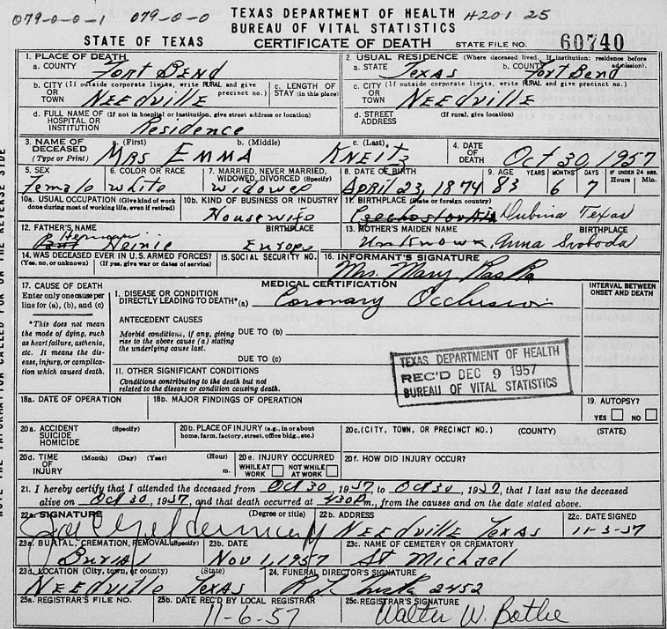 079-0-0-1 079-0-0 TEXAS DEPARTMENT OF HEALTH H201 25
BUREAU OF VITAL STATISTICS
STATE OF TEXAS CERTIFICATE OF DEATH STATE FILE NO. 60740
1. PLACE OF DEATH 2. USUAL RESIDENCE (Where deceased lived. If institution: residence before admission).
a. COUNTY Fort Bend a. STATE Texas b. COUNTY Fort Bend
b. CITY (If outside corporate limits, write RURAL and give precinct no.) OR TOWN Needville c. LENGTH OF STAY (in this place) c. CITY (If outside corporate limits, write RURAL and give precinct no.) OR TOWN Needville
d. FULL NAME OF (If not in hospital or institution, give street address or location) HOSPITAL OR INSTITUTION Residence d. STREET ADDRESS (If rural, give location)
3. NAME OF DECEASED (Type or Print) a. (First) MRS EMMA b. (Middle) c. (Last) 4. DATE OF DEATH Oct 30, 1957
5. SEX Female 6. COLOR OR RACE white 7. MARRIED, NEVER MARRIED, WIDOWED, DIVORCED (Specify) widowed 8. DATE OF BIRTH April 23, 1874 9. AGE YEARS 83 MONTHS 6 DAYS 7 IF UNDER 24 HRS. Hours Min.
10a. USUAL OCCUPATION (Give kind of work done during most of working life, even if retired) 10b. KIND OF BUSINESS OR INDUSTRY Housewife 11. BIRTHPLACE (State or foreign country) Dubina Texas
12. FATHER'S NAME Herman Heinie BIRTHPLACE Europe 13. MOTHER'S MAIDEN NAME Unknown, Anna Svoboda BIRTHPLACE
14. WAS DECEASED EVER IN U.S. ARMED FORCES? (Yes, no, or unknown) (If yes, give war or dates of service) 15. SOCIAL SECURITY NO. 16. INFORMANT'S SIGNATURE Mrs. Mary
17. CAUSE OF DEATH MEDICAL CERTIFICATION INTERVAL BETWEEN ONSET AND DEATH
Enter only one cause per line for (a), (b), and (c) I. DISEASE OR CONDITION DIRECTLY LEADING TO DEATH*(a) Coronary Occlusion
*This does not mean the mode of dying, such as heart failure, asthenia, etc. It means the disease, injury, or complication which caused death.
ANTECEDENT CAUSES
Morbid conditions, if any, giving rise to the above cause (a) stating the underlying cause last. DUE TO (b)
DUE TO (c)
II. OTHER SIGNIFICANT CONDITIONS
Conditions contributing to the death but not related to the disease or condition causing death.
TEXAS DEPARTMENT OF HEALTH
REC'D DEC 9 1957
BUREAU OF VITAL STATISTICS
18a. DATE OF OPERATION 18b. MAJOR FINDINGS OF OPERATION 19. AUTOPSY? YES NO
20a. ACCIDENT SUICIDE HOMICIDE (Specify) 20b. PLACE OF INJURY (e.g., in or about home, farm, factory, street, office bldg., etc.) 20c. (CITY, TOWN, OR PRECINCT NO.) (COUNTY) (STATE)
20d. TIME OF INJURY (Month) (Day) (Year) (Hour) m. 20e. INJURY OCCURRED WHILE AT WORK NOT WHILE AT WORK 20f. HOW DID INJURY OCCUR?
21. I hereby certify that I attended the deceased from Oct 30, 1957, to Oct 30, 1957, that I last saw the deceased
alive on Oct 30, 1957, and that death occurred at 430 P m., from the causes and on the date stated above.
22a. SIGNATURE (Degree or title) 22b. ADDRESS Needville Texas 22c. DATE SIGNED 11-3-57
23a. BURIAL, CREMATION, REMOVAL (Specify) Burial 23b. DATE Nov 1, 1957 23c. NAME OF CEMETERY OR CREMATORY St Michael
23d. LOCATION (City, town, or county) (State) Needville Texas 24. FUNERAL DIRECTOR'S SIGNATURE 2452
25a. REGISTRAR'S FILE NO. 25b. DATE REC'D BY LOCAL REGISTRAR 11-6-57 25c. REGISTRAR'S SIGNATURE Walter W. Bothe